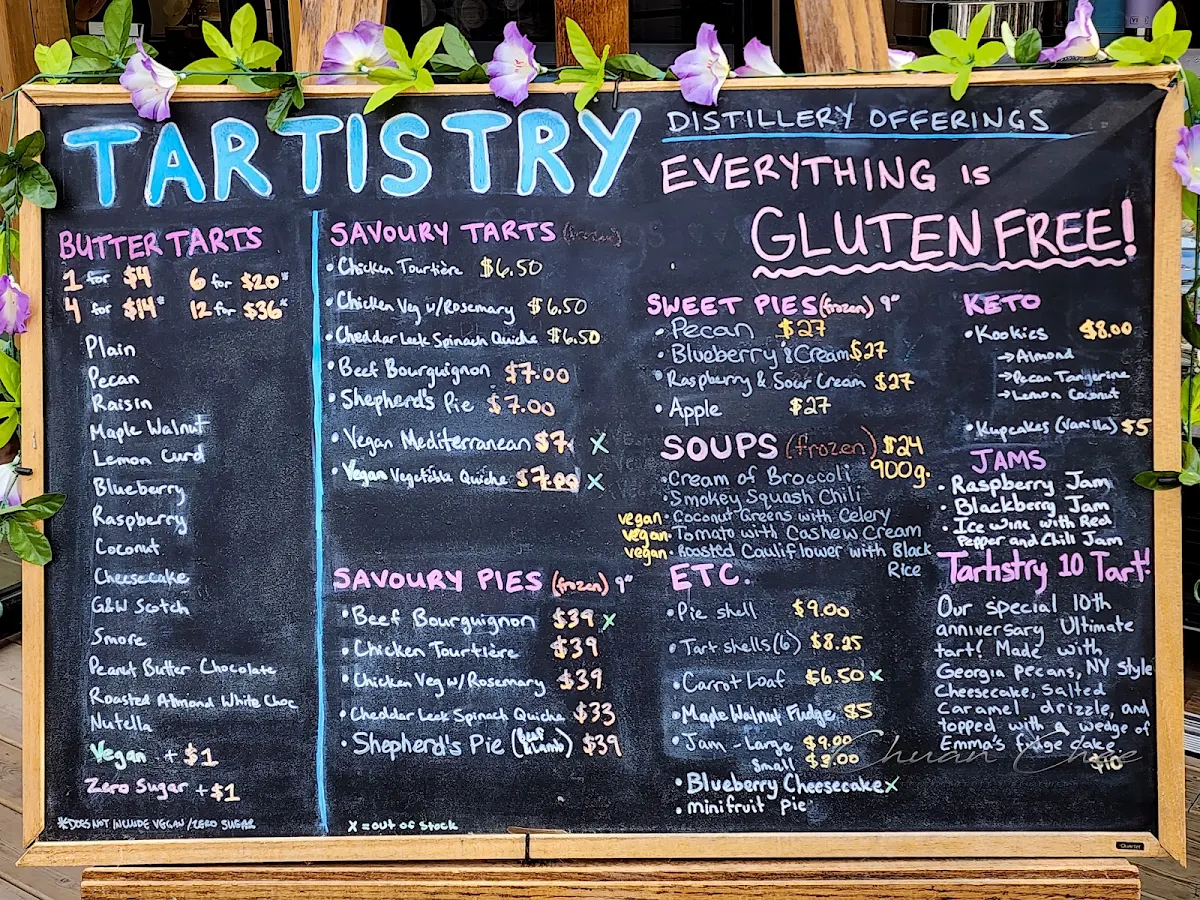 TARTISTRY
DISTILLERY OFFERINGS
EVERYTHING is
GLUTEN FREE!
BUTTER TARTS
1 for $4 6 for $20*
4 for $14* 12 for $36*
Plain
Pecan
Raisin
Maple Walnut
Lemon Curd
Blueberry
Raspberry
Coconut
Cheesecake
G&W Scotch
Smore
Peanut Butter Chocolate
Roasted Almond White Choc
Nutella
Vegan + $1
Zero Sugar + $1
*DOES NOT INCLUDE VEGAN/ZERO SUGAR
SAVOURY TARTS (frozen)
• Chicken Tourtière $6.50
• Chicken Veg w/Rosemary $6.50
• Cheddar Leek Spinach Quiche $6.50
• Beef Bourguignon $7.00
• Shepherd's Pie $7.00
• Vegan Mediterranean $7 X
• Vegan Vegetable Quiche $7.00 X
SAVOURY PIES (frozen) 9"
• Beef Bourguignon $39 X
• Chicken Tourtière $39
• Chicken Veg w/Rosemary $39
• Cheddar Leek Spinach Quiche $33
• Shepherd's Pie (Beef & Lamb) $39
X = out of stock
SWEET PIES (frozen) 9"
• Pecan $27
• Blueberry & Cream $27
• Raspberry & Sour Cream $27
• Apple $27
SOUPS (frozen) $24
900g.
• Cream of Broccoli
• Smokey Squash Chili
vegan • Coconut Greens with Celery
vegan • Tomato with Cashew Cream
vegan • Roasted Cauliflower with Black
Rice
ETC.
• Pie shell $9.00
• Tart shells (6) $8.25
• Carrot Loaf $6.50 X
• Maple Walnut Fudge $5
• Jam - Large $9.00
Small $3.00
• Blueberry Cheesecake X
• mini fruit pie
KETO
• Kookies $8.00
→ Almond
→ Pecan Tangerine
→ Lemon Coconut
• Kupcakes (Vanilla) $5
JAMS
• Raspberry Jam
• Blackberry Jam
• Ice wine with Red
Pepper and Chili Jam
Tartistry 10 Tart!
Our special 10th
anniversary Ultimate
tart! Made with
Georgia pecans, NY style
Cheesecake, Salted
Caramel drizzle, and
topped with a wedge of
Emma's fudge cake.
$10
Chuan Chee
Quartet